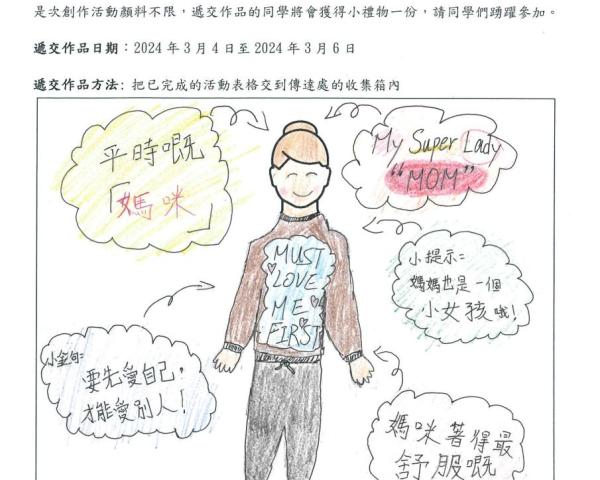 是次創作活動顏料不限，遞交作品的同學將會獲得小禮物一份，請同學們踴躍參加。
遞交作品日期：2024 年 3 月 4 日至 2024 年 3 月 6 日
遞交作品方法: 把已完成的活動表格交到傳達處的收集箱內
平時嘅
「媽咪」
My Super Lady
“MOM”
MUST
LOVE
ME
FIRST
小提示=
媽媽也是一個
小女孩哦!
小金句=
要先愛自己,
才能愛別人!
媽咪著得最
舒服嘅